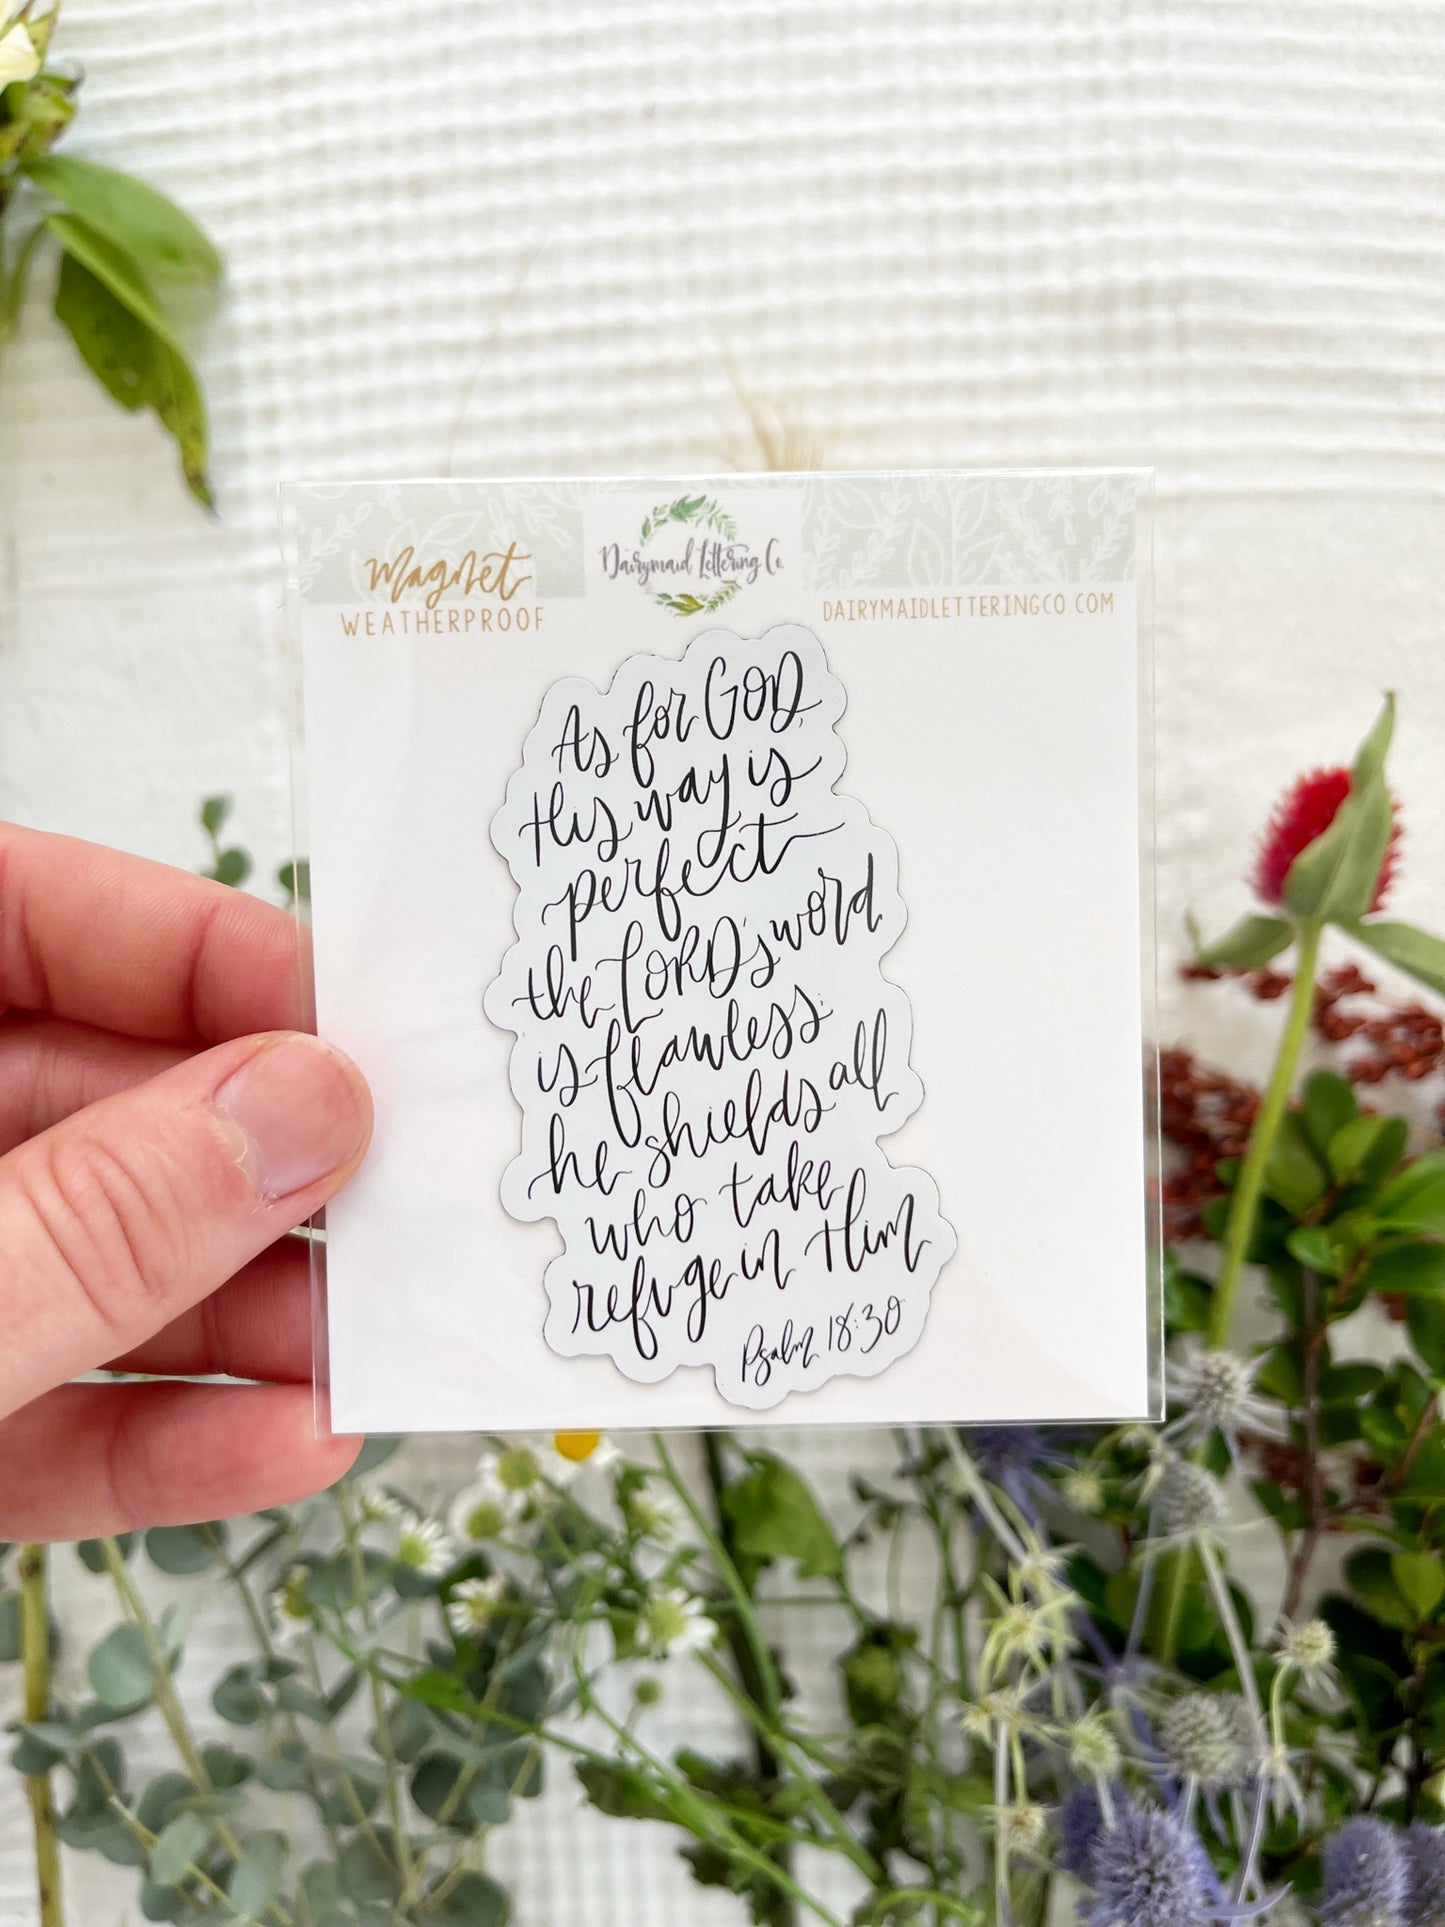 Magnet
WEATHERPROOF
Dairymaid Lettering Co.
DAIRYMAIDLETTERINGCO.COM
As for GOD,
His way is
perfect
the LORD's word
is flawless;
he shields all
who take
refuge in Him
Psalm 18:30